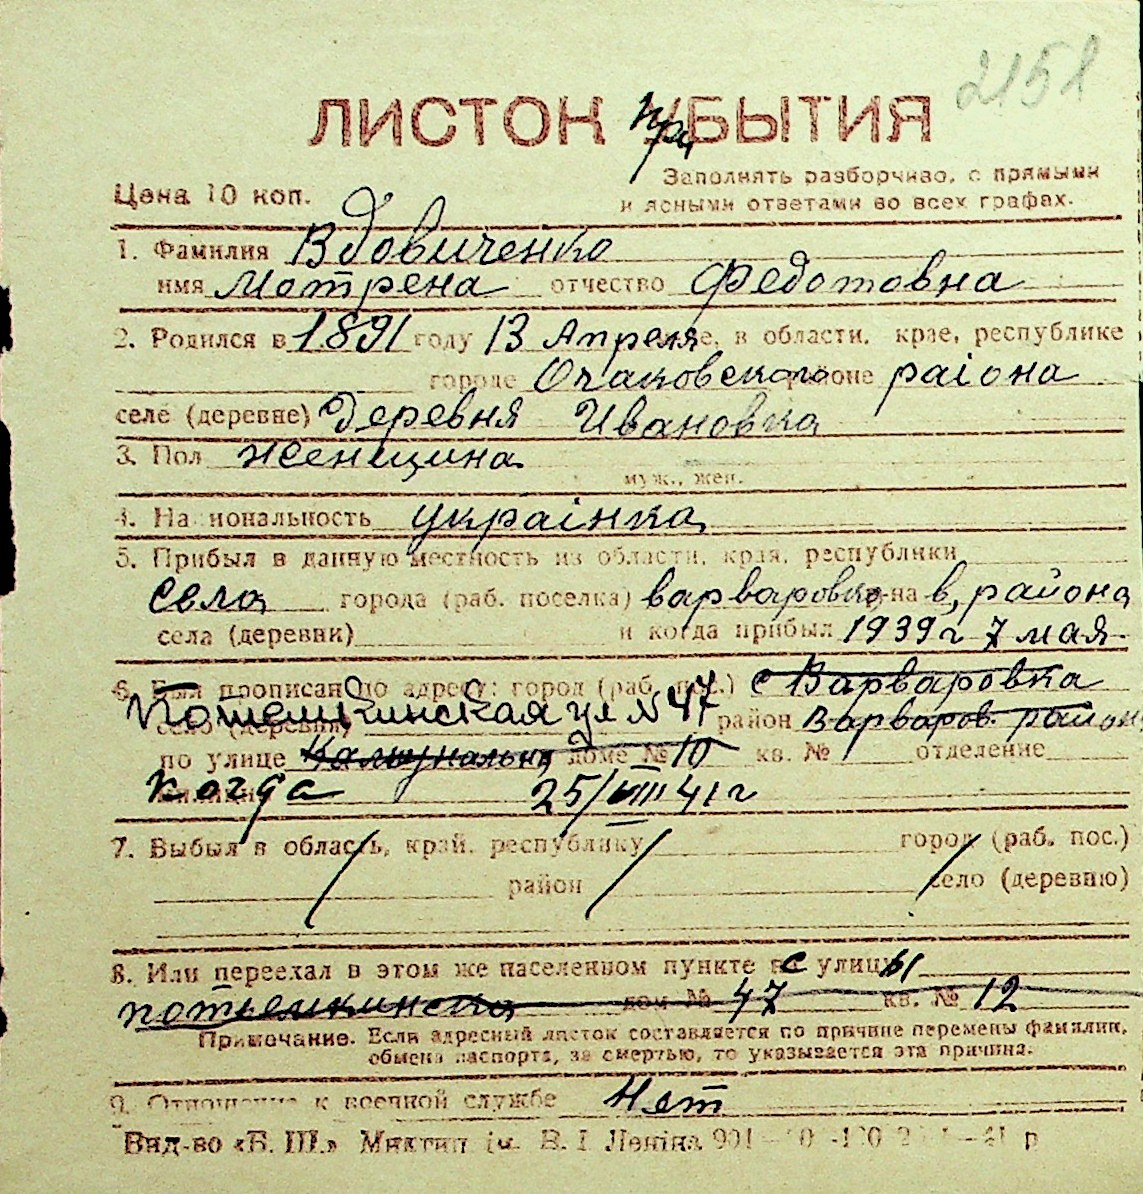 2151
ЛИСТОК УБЫТИЯ
при
Цена 10 коп.
Заполнять разборчиво, с прямыми
и ясными ответами во всех графах.
1. Фамилия Вдовиченко
имя Мотрена отчество Федотовна
2. Родился в 1891 году 13 Апреля, в области, крае, республике
городе Очаковского районе раіона
селе (деревне) Деревня Ивановка
3. Пол женщина
муж., жен.
4. Национальность украінка
5. Прибыл в данную местность из области, края, республики
села города (раб. поселка) варваровка р-на в, района
села (деревни) и когда прибыл 1939 г 7 мая
6. Был прописан по адресу: город (раб. пос.) с Варваровка
Потемкинская ул № 47
село (деревня) район Варваров. район
по улице Коммунальна доме № 10 кв. № отделение
когда 25/VIII 41 г
7. Выбыл в область, край, республику город (раб. пос.)
район село (деревню)
8. Или переехал в этом же населенном пункте с улицы
потьемкинска дом № 47 кв. № 12
Примечание. Если адресный листок составляется по причине перемены фамилии,
обмена паспорта, за смертью, то указывается эта причина.
9. Отношение к военной службе Нет
Вид-во «Б. Ш.» Миктип ім. В. І Леніна 901